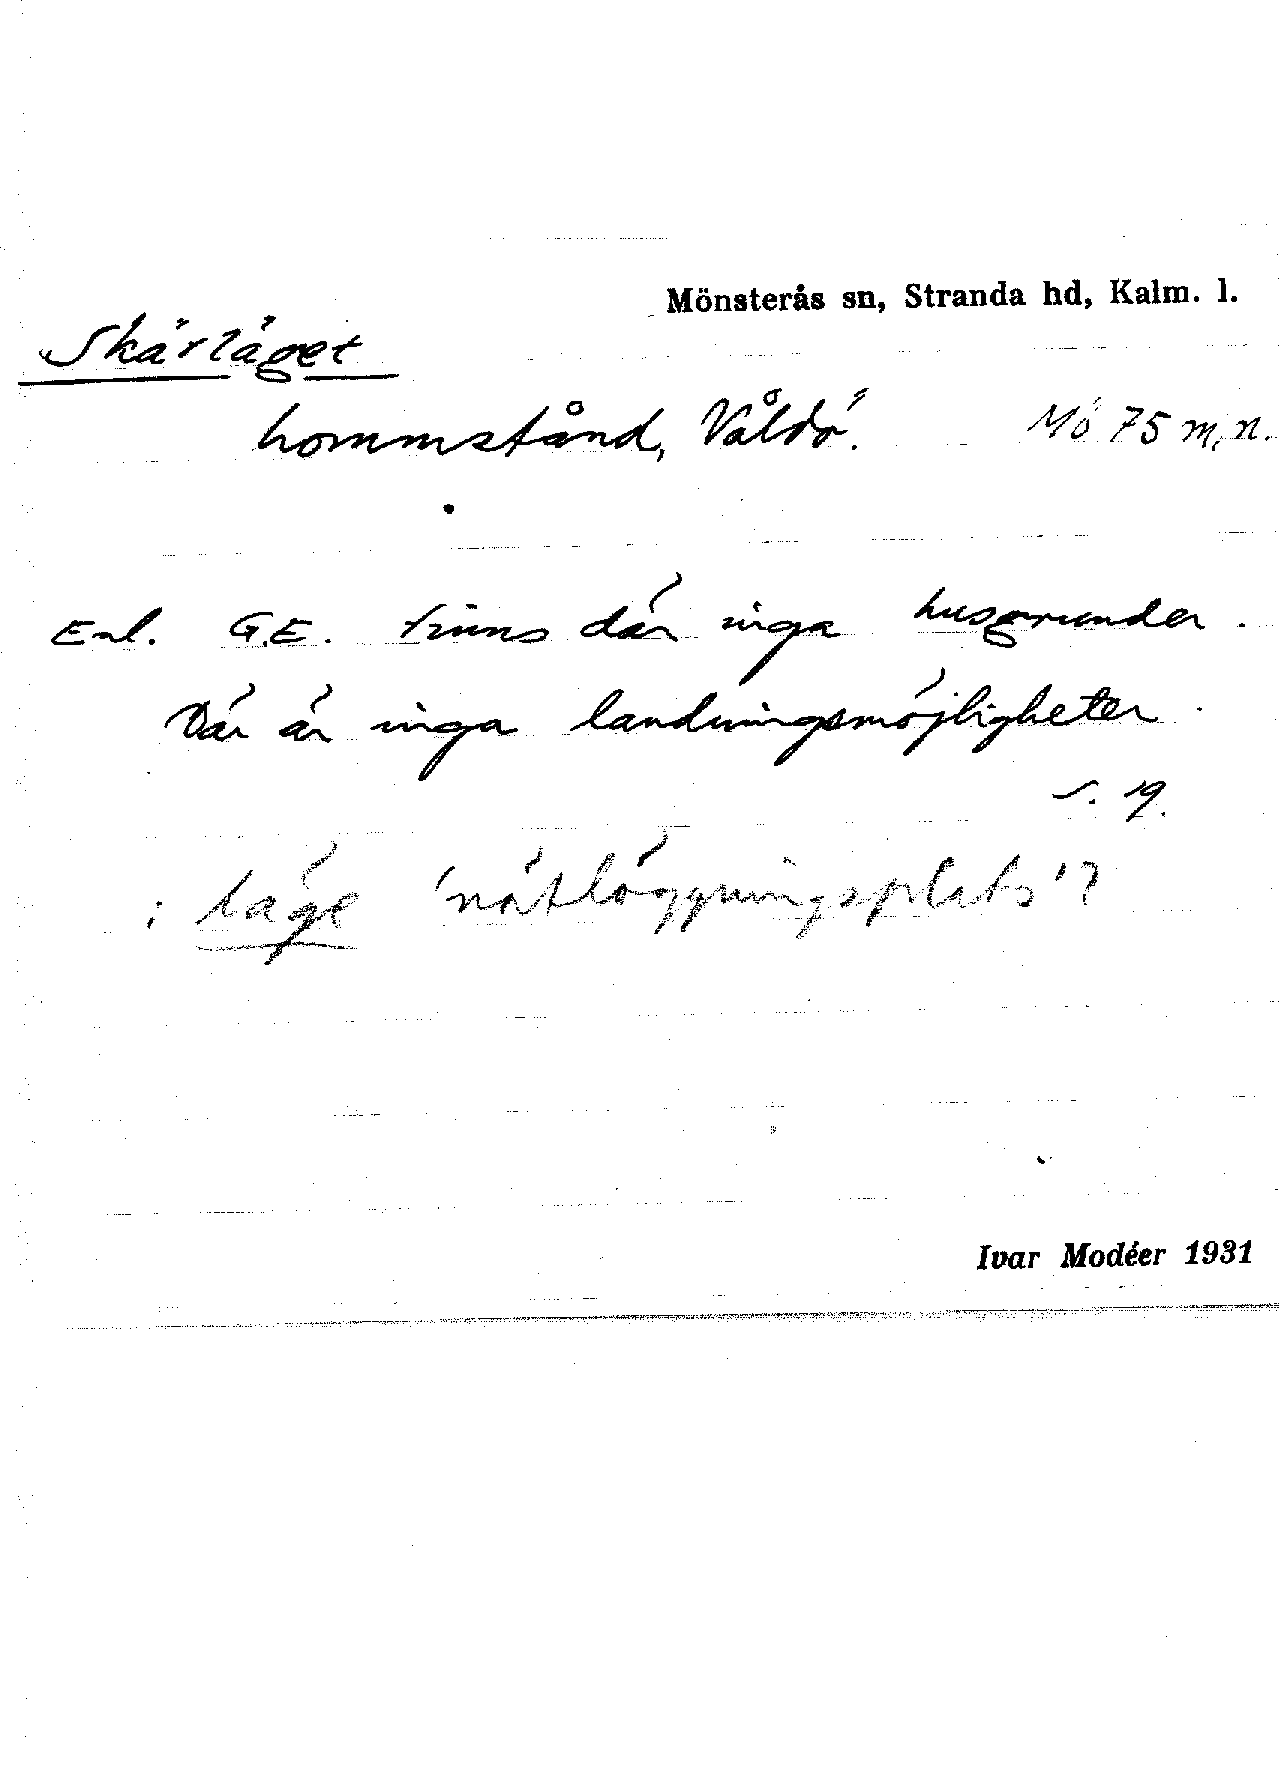 Mönsterås sn, Stranda hd, Kalm. l.
Skärläget
hommstånd, Våldö.
Mö 75 m, n.
Enl. G.E. finns där inga husgrunder.
Där är inga landningsmöjligheter.
S. 19.
: läge 'nätläggningsplats'?
Ivar Modéer 1931